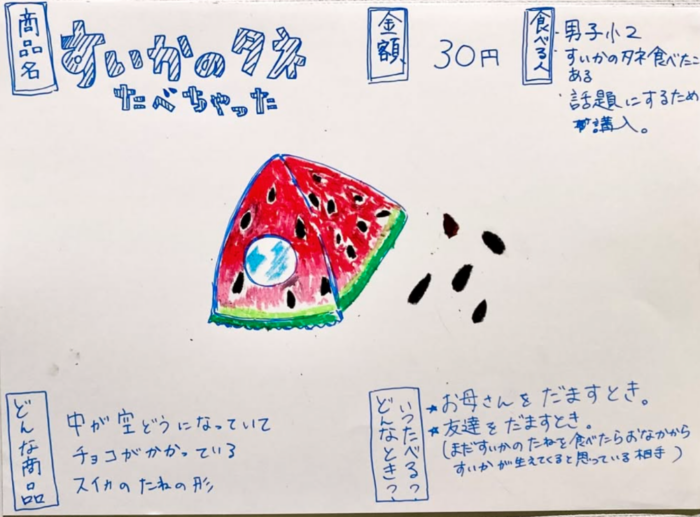 商品名
すいかのタネ
たべちゃった
金額
30円
食べる人
・男子小2
・すいかのタネ食べたこ
ある
・話題にするため
購入。
どんな商品
中が空どうになっていて
チョコがかかっている
スイカのたねの形
いつたべる?
どんなとき?
★お母さんをだますとき。
★友達をだますとき。
(まだすいかのたねを食べたらおなかから
すいかが生えてくると思っている相手)